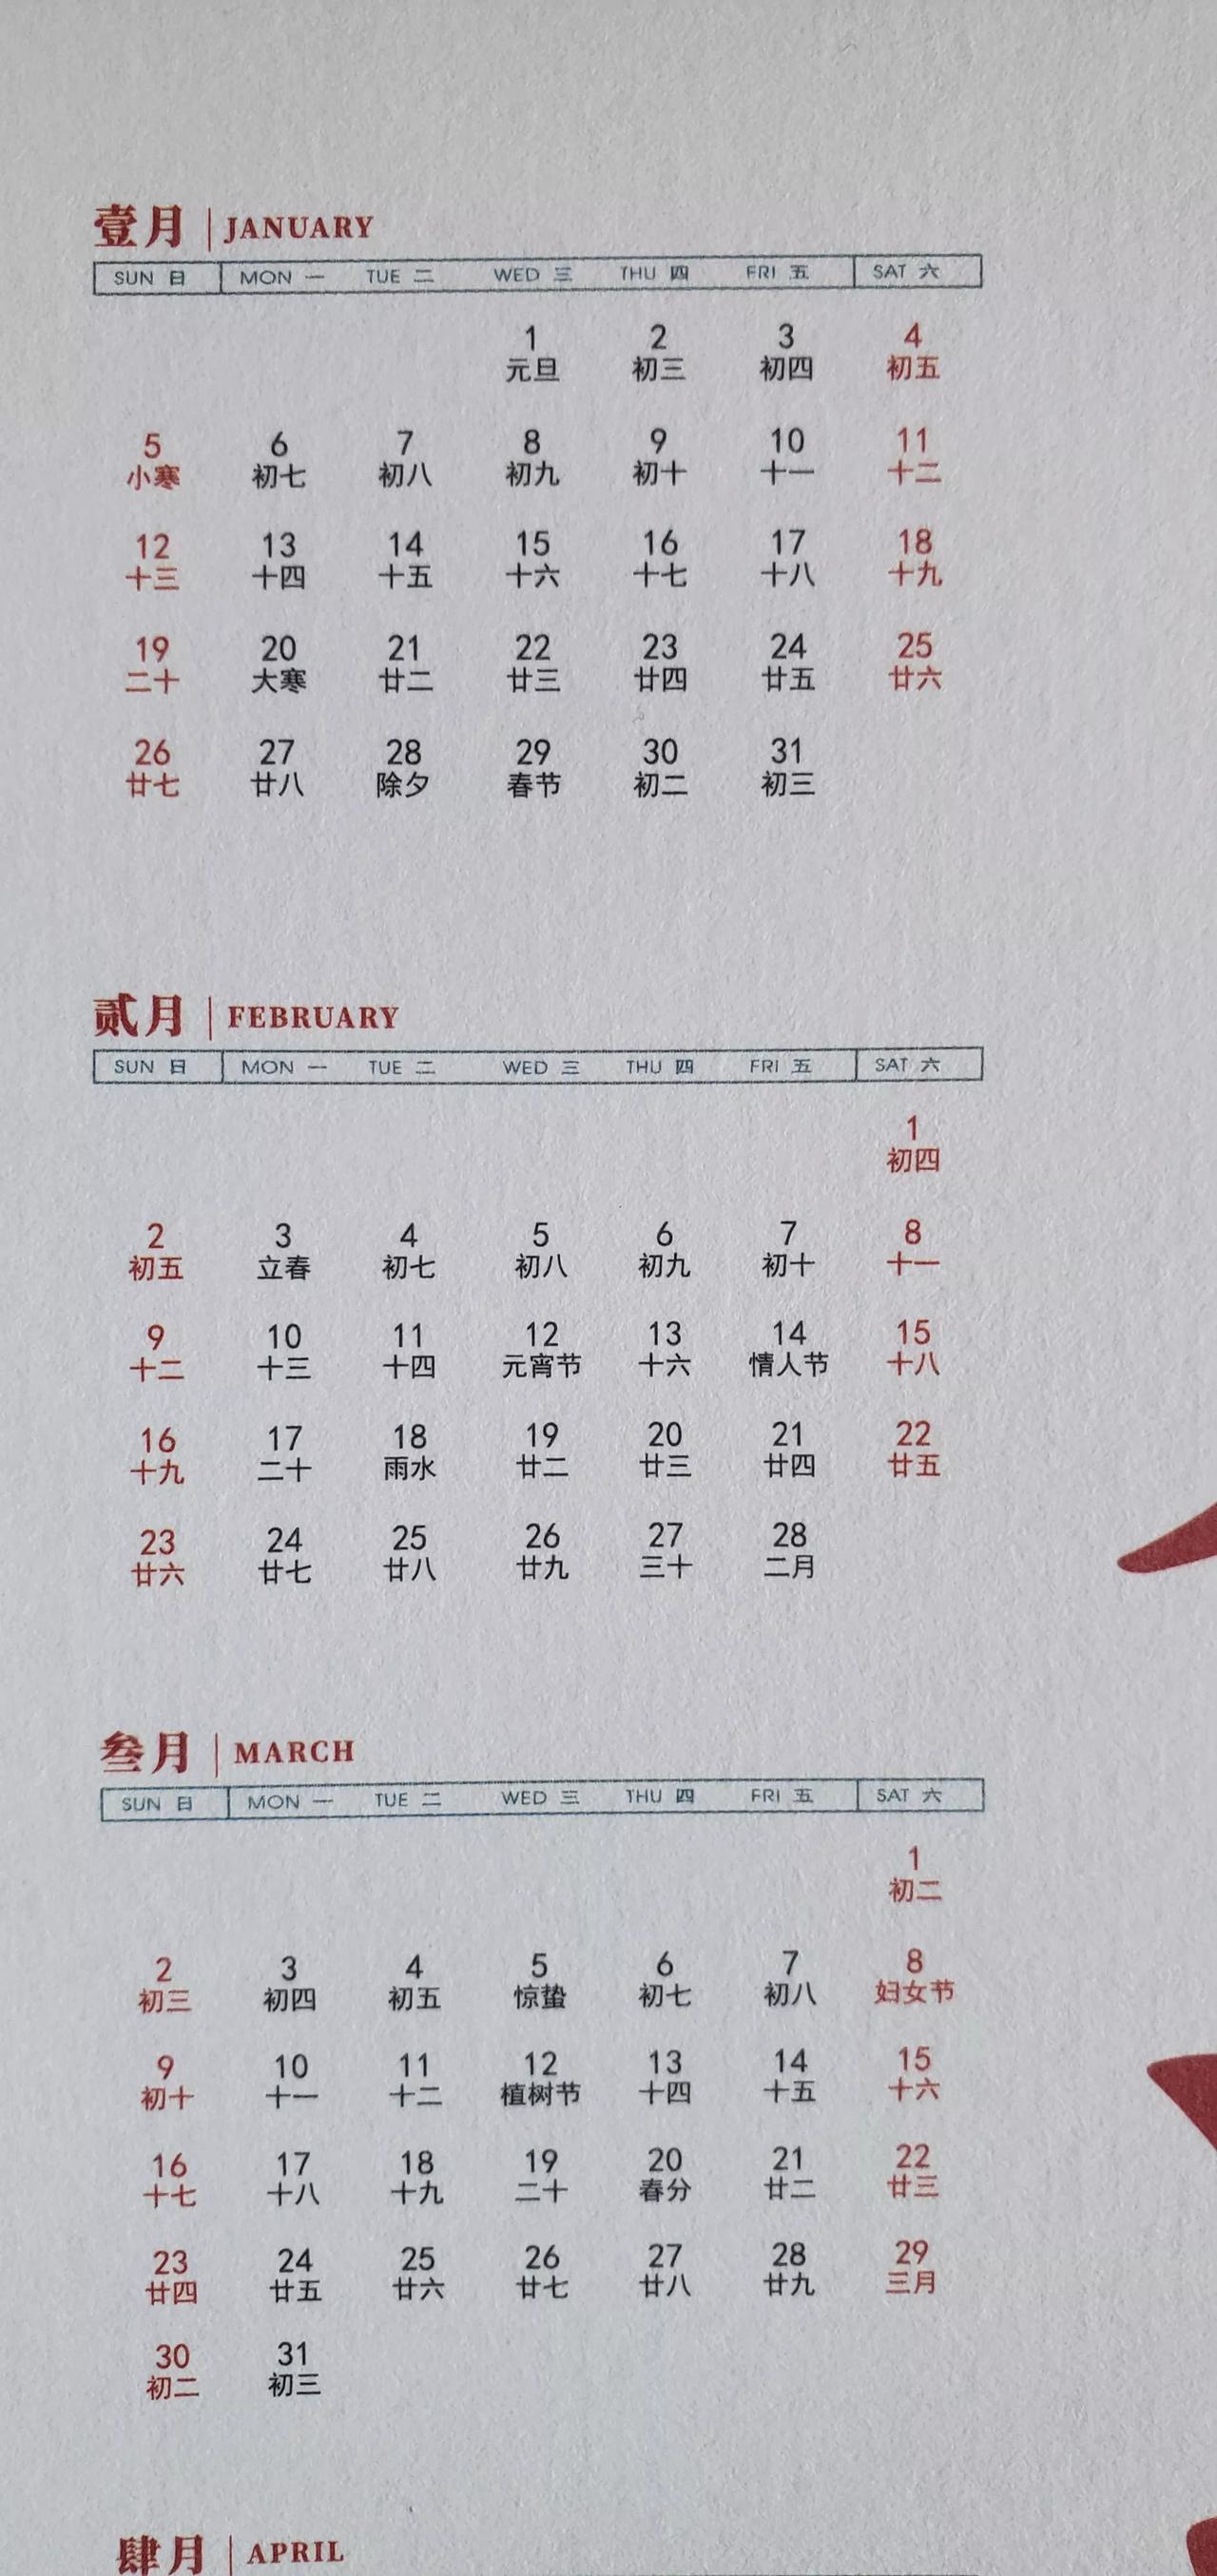 壹月 | JANUARY
SUN 日 MON 一 TUE 二 WED 三 THU 四 FRI 五 SAT 六
1 2 3 4
元旦 初三 初四 初五
5 6 7 8 9 10 11
小寒 初七 初八 初九 初十 十一 十二
12 13 14 15 16 17 18
十三 十四 十五 十六 十七 十八 十九
19 20 21 22 23 24 25
二十 大寒 廿二 廿三 廿四 廿五 廿六
26 27 28 29 30 31
廿七 廿八 除夕 春节 初二 初三
贰月 | FEBRUARY
SUN 日 MON 一 TUE 二 WED 三 THU 四 FRI 五 SAT 六
1
初四
2 3 4 5 6 7 8
初五 立春 初七 初八 初九 初十 十一
9 10 11 12 13 14 15
十二 十三 十四 元宵节 十六 情人节 十八
16 17 18 19 20 21 22
十九 二十 雨水 廿二 廿三 廿四 廿五
23 24 25 26 27 28
廿六 廿七 廿八 廿九 三十 二月
叁月 | MARCH
SUN 日 MON 一 TUE 二 WED 三 THU 四 FRI 五 SAT 六
1
初二
2 3 4 5 6 7 8
初三 初四 初五 惊蛰 初七 初八 妇女节
9 10 11 12 13 14 15
初十 十一 十二 植树节 十四 十五 十六
16 17 18 19 20 21 22
十七 十八 十九 二十 春分 廿二 廿三
23 24 25 26 27 28 29
廿四 廿五 廿六 廿七 廿八 廿九 三月
30 31
初二 初三
肆月 | APRIL